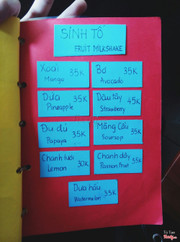 SINH TỐ
FRUIT MILKSHAKE
Xoài 35K
Mango
Bơ 35K
Avocado
Dứa 35K
Pineapple
Dâu tây 45K
Strawberry
Đu đủ 35K
Papaya
Mãng Cầu 35K
Soursop
Chanh tươi 30K
Lemon
Chanh dây 35K
Passion Fruit
Dưa hấu 35K
Watermelon